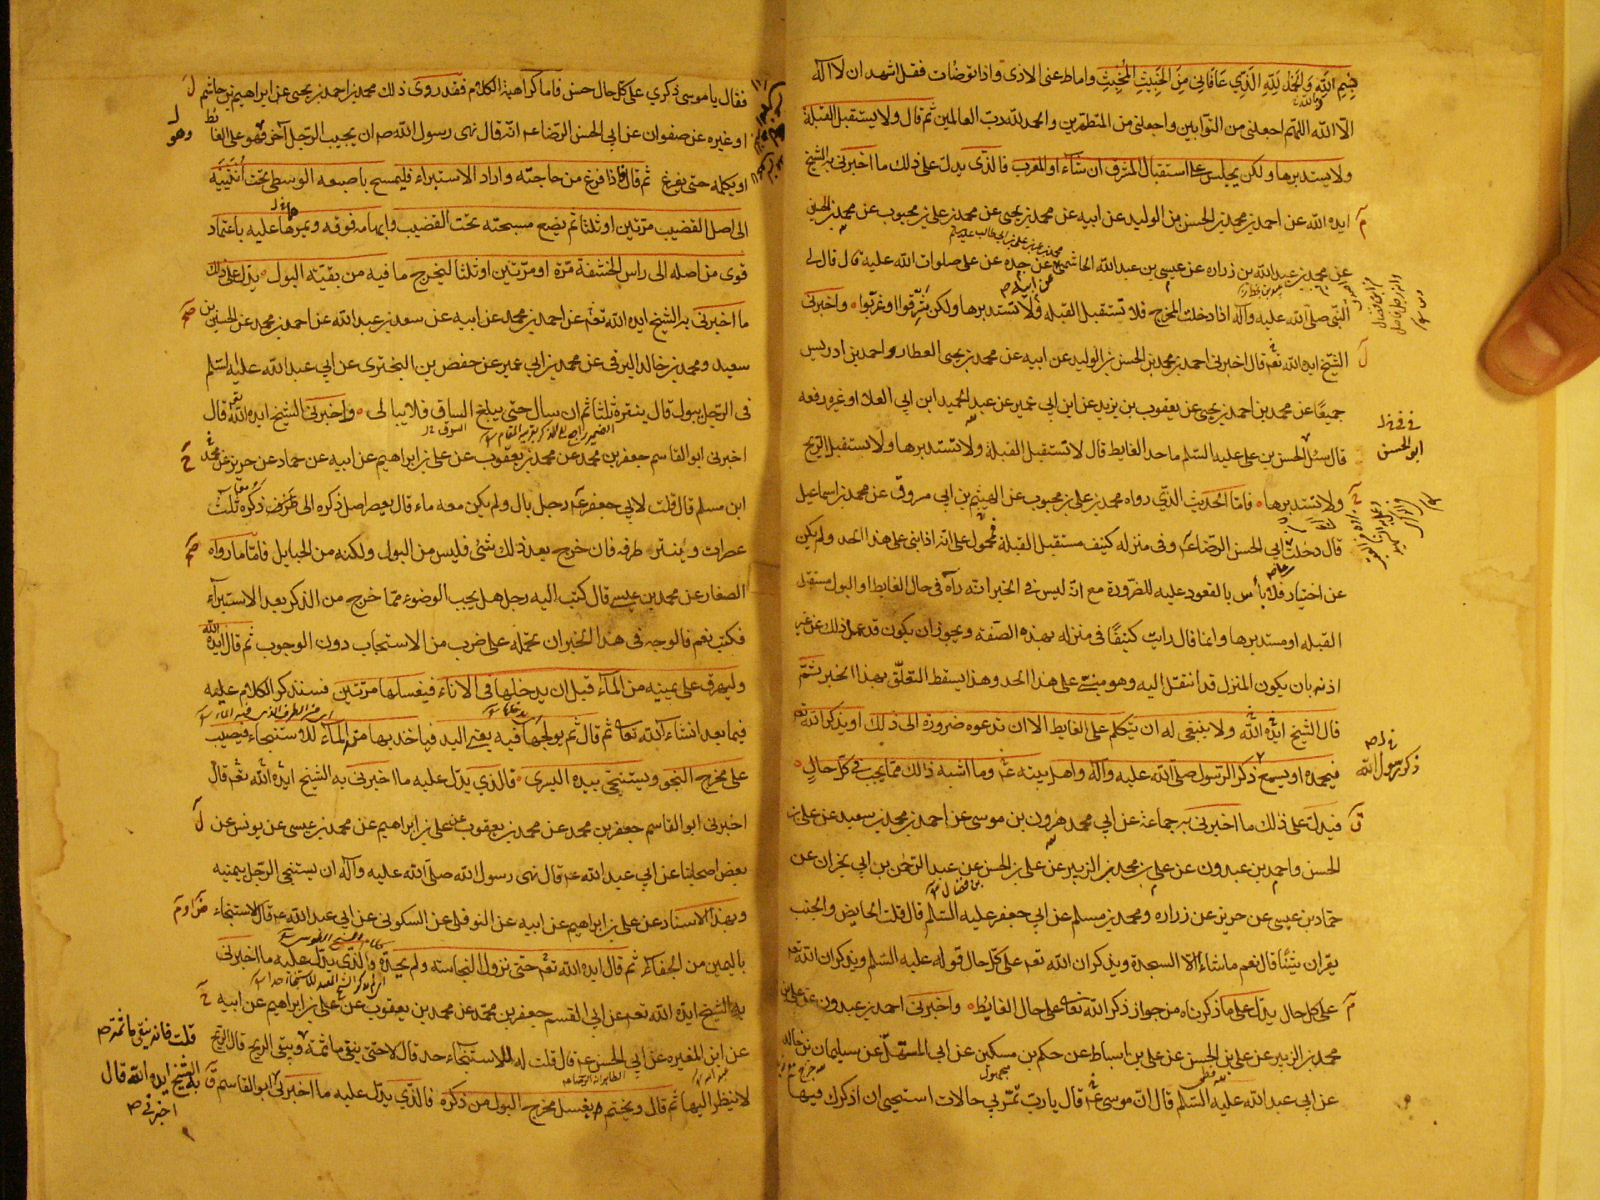 بسم الله والحمد لله الذي عافاني من الخبيث المخبث واماط عني الاذى واذا توضات فقل اشهد ان لا اله
الا الله اللهم اجعلني من التوابين واجعلني من المتطهرين والحمد لله رب العالمين ثم قال ولا يستقبل القبلة
ولا يستدبرها ولكن يجلس على استقبال المشرق ان شاء او المغرب فالذي يدل على ذلك ما اخبرني به الشيخ
ايده الله عن احمد بن محمد بن الحسن بن الوليد عن ابيه عن محمد بن يحيى عن محمد بن علي بن محبوب عن محمد بن الحسين
عن محمد بن عبد الله بن زرارة عن عيسى بن عبد الله الهاشمي عن جده عن علي صلوات الله عليه قال قال لي
النبي صلى الله عليه وآله اذا دخلت المخرج فلا تستقبل القبلة ولا تستدبرها ولكن شرقوا او غربوا واخبرني
الشيخ ايده الله تعالى قال اخبرني احمد بن محمد بن الحسن بن الوليد عن ابيه عن محمد بن يحيى العطار واحمد بن ادريس
جميعا عن محمد بن احمد بن يحيى عن يعقوب بن يزيد عن ابن ابي عمير عن عبد الحميد ابن ابي العلا او غيره رفعه
قال سئل الحسن بن علي عليه السلم ما حد الغايط قال لا تستقبل القبلة ولا تستدبرها ولا تستقبل الريح
ولا تستدبرها فاما الحديث الذي رواه محمد بن علي بن محبوب عن الهيثم بن ابي مروق عن محمد بن اسماعيل
قال دخلت على ابي الحسن الرضا ع وفي منزله كنيف مستقبل القبلة فمحمول على انه اذا بني على هذا الحد ولم يكن
عن اختيار فلا بأس بالقعود عليه للضرورة مع انه ليس في الخبر انه رآه في حال الغايط او البول مستقبل
القبلة او مستدبرها وانما قال رايت كنيفا في منزله بهذه الصفة ويجوز ان يكون قد عمل ذلك عن غير
اذنه بان يكون المنزل قد انتقل اليه وهو مبني على هذا الحد وهذا يسقط التعلق بهذا الخبر ثم
قال الشيخ ايده الله ولا ينبغي له ان يتكلم على الغايط الا ان تدعوه ضرورة الى ذلك او يذكر الله
فيحمده او يسمع ذكر الرسول صلى الله عليه وآله واهل بيته ع وما اشبه ذلك مما يجب في كل حال
فيدل على ذلك ما اخبرني به جماعة عن ابي محمد هرون بن موسى عن احمد بن محمد بن سعيد عن علي بن
الحسن واحمد بن عبدون عن علي بن محمد بن الزبير عن علي بن الحسن عن عبد الرحمن بن ابي نجران عن
حماد بن عيسى عن حريز عن زرارة ومحمد بن مسلم عن ابي جعفر عليه السلم قال قلت الحايض والجنب
يقران شيئا قال نعم ما شاءا الا السجدة ويذكران الله تعالى على كل حال قوله عليه السلم ويذكران الله
على كل حال يدل على ما ذكرناه من جواز ذكر الله تعالى على حال الغايط واخبرني احمد بن عبدون عن علي بن
محمد بن الزبير عن علي بن الحسن عن علي بن اسباط عن حكم بن مسكين عن ابي المستهل عن سليمان بن خالد
عن ابي عبد الله عليه السلم قال ان موسى ع قال يا رب تمر بي حالات استحيي ان اذكرك فيها
ابو الحسن
ذكر رسول الله
فقال يا موسى ذكري على كل حال حسن فاما كراهية الكلام فقد روى ذلك محمد بن احمد بن يحيى عن ابراهيم بن هاشم
او غيره عن صفوان عن ابي الحسن الرضا ع انه قال نهى رسول الله ص ان يجيب الرجل آخر وهو على الغائط
او يكلمه حتى يفرغ ثم قال فاذا فرغ من حاجته واراد الاستبراء فليمسح باصبعه الوسطى تحت انثييه
الى اصل القضيب مرتين او ثلثا ثم يضع مسبحته تحت القضيب وابهامه فوقه ويمرهما عليه باعتماد
قوي من اصله الى راس الحشفة مرة او مرتين او ثلثا ليخرج ما فيه من بقية البول يدل على ذلك
ما اخبرني به الشيخ ايده الله تعالى عن احمد بن محمد عن ابيه عن سعد بن عبد الله عن احمد بن محمد عن الحسين بن
سعيد ومحمد بن خالد البرقي عن محمد بن ابي عمير عن حفص بن البختري عن ابي عبد الله عليه السلم
في الرجل يبول قال ينتره ثلثا ثم ان سال حتى يبلغ الساق فلا يبالي واخبرني الشيخ ايده الله قال
اخبرني ابو القاسم جعفر بن محمد عن محمد بن يعقوب عن علي بن ابراهيم عن ابيه عن حماد عن حريز عن محمد
ابن مسلم قال قلت لابي جعفر ع رجل بال ولم يكن معه ماء قال يعصر اصل ذكره الى طرف ذكره ثلث
عصرات وينتر طرفه فان خرج بعد ذلك شئ فليس من البول ولكنه من الحبايل فاما ما رواه
الصفار عن محمد بن عيسى قال كتب اليه رجل هل يجب الوضوء مما خرج من الذكر بعد الاستبراء
فكتب نعم فالوجه في هذا الخبر ان نحمله على ضرب من الاستحباب دون الوجوب ثم قال ايده الله
وليهرق على يمينه من الماء قبل ان يدخلها في الاناء فيغسلها مرتين فسنذكر الكلام عليه
فيما بعد انشاء الله تعالى ثم قال ثم يولجها فيه يعني اليد فياخذ بها من الماء للاستنجاء فيصب
على مخرج النجو ويستنجي بيده اليسرى فالذي يدل عليه ما اخبرني به الشيخ ايده الله تعالى قال
اخبرني ابو القاسم جعفر بن محمد عن محمد بن يعقوب عن علي بن ابراهيم عن محمد بن عيسى عن يونس عن
بعض اصحابنا عن ابي عبد الله ع قال نهى رسول الله صلى الله عليه وآله ان يستنجي الرجل بيمينه
وبهذا الاسناد عن علي بن ابراهيم عن ابيه عن النوفلي عن السكوني عن ابي عبد الله ع قال الاستنجاء
باليمين من الجفاء ثم قال ايده الله تعالى حتى تزول النجاسة ولم يحده والذي يدل عليه ما اخبرني
به الشيخ ايده الله تعالى عن ابي القسم جعفر بن محمد عن محمد بن يعقوب عن علي بن ابراهيم عن ابيه
عن ابن المغيرة عن ابي الحسن ع قال قلت له للاستنجاء حد قال لا حتى ينقى ما ثمة ويبقى الريح قال الريح
لا ينظر اليها ثم قال ويختم بغسل مخرج البول من ذكره فالذي يدل عليه ما اخبرني ابو القاسم
قلت فانه ينقى ما ثمة
به الشيخ ايده الله قال
اخبرني